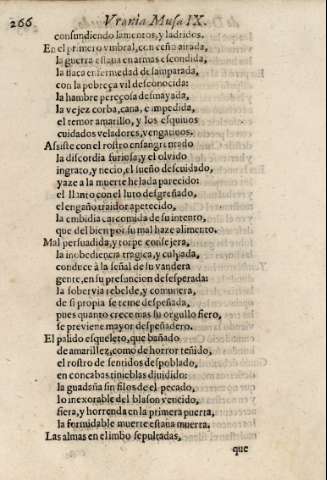 266
Vrania Musa IX.
confundiendo lamentos, y ladridos.
En el primero vmbral, con ceño airada,
la guerra estaua en armas escondida,
la flaca enfermedad desamparada,
con la pobreça vil desconocida:
la hambre pereçosa desmayada,
la vejez corba, cana, e impedida,
el temor amarillo, y los esquiuos
cuidados veladores, vengatiuos.
Assiste con el rostro ensangrentado
la discordia furiosa; y el oluido
ingrato, y necio, el sueño descuidado,
yaze a la muerte helada parecido:
el llanto con el luto desgreñado,
el engaño traidor apetecido,
la embidia carcomida de su intento,
que del bien por su mal haze alimento.
Mal persuadida, y torpe consejera,
la inobediencia tragica, y culpada,
conduce à la señal de su vandera
gente, en su presuncion desesperada:
la soberuia rebelde, y comunera,
de si propia se teme despeñada,
pues quanto crece mas su orgullo fiero,
se preuiene mayor despeñadero.
El palido esqueleto, que bañado
de amarillez, como de horror teñido,
el rostro de sentidos despoblado,
en concabas tinieblas diuidido:
la guadaña sin filos de el pecado,
lo inexorable del blason vencido,
fiera, y horrenda en la primera puerta,
la formidable muerte estaua muerta.
Las almas en el imbo sepultadas,
que